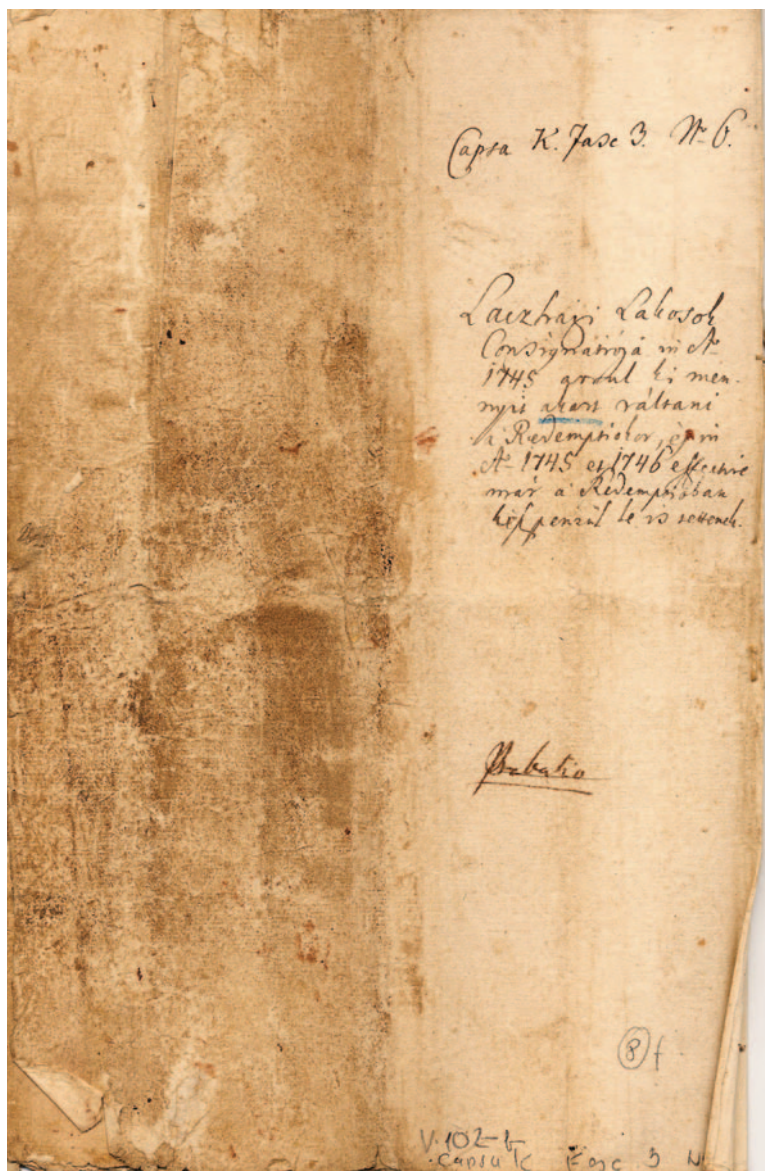 Capsa K. Fasc 3. Nr 6.
Laczházi Lakosok
Consignátiójá in Ao
1745 arrul ki men-
nyit akart váltani
a Redemptiokor, és in
Ao 1745 et 1746 effective
már a Redemptioban
kész pénzül le is tettenek.
Probatio
8 f
V.102-b
Capsa K Fasc 3 N